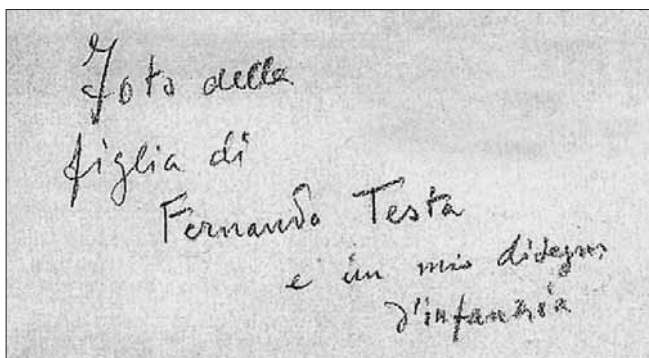 Foto della
figlia di
Fernando Testa
e un mio disegno
d'infanzia